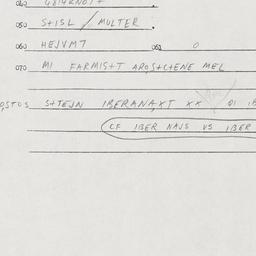 050 S+ISL / MULTER
060 HEJVM7 061 0
070 MI FARMIS+T APOS+C+ENE MEL
OSTOS S+TEJN IBERANA,XT XX 01
CF IBER NAJS VS IBER